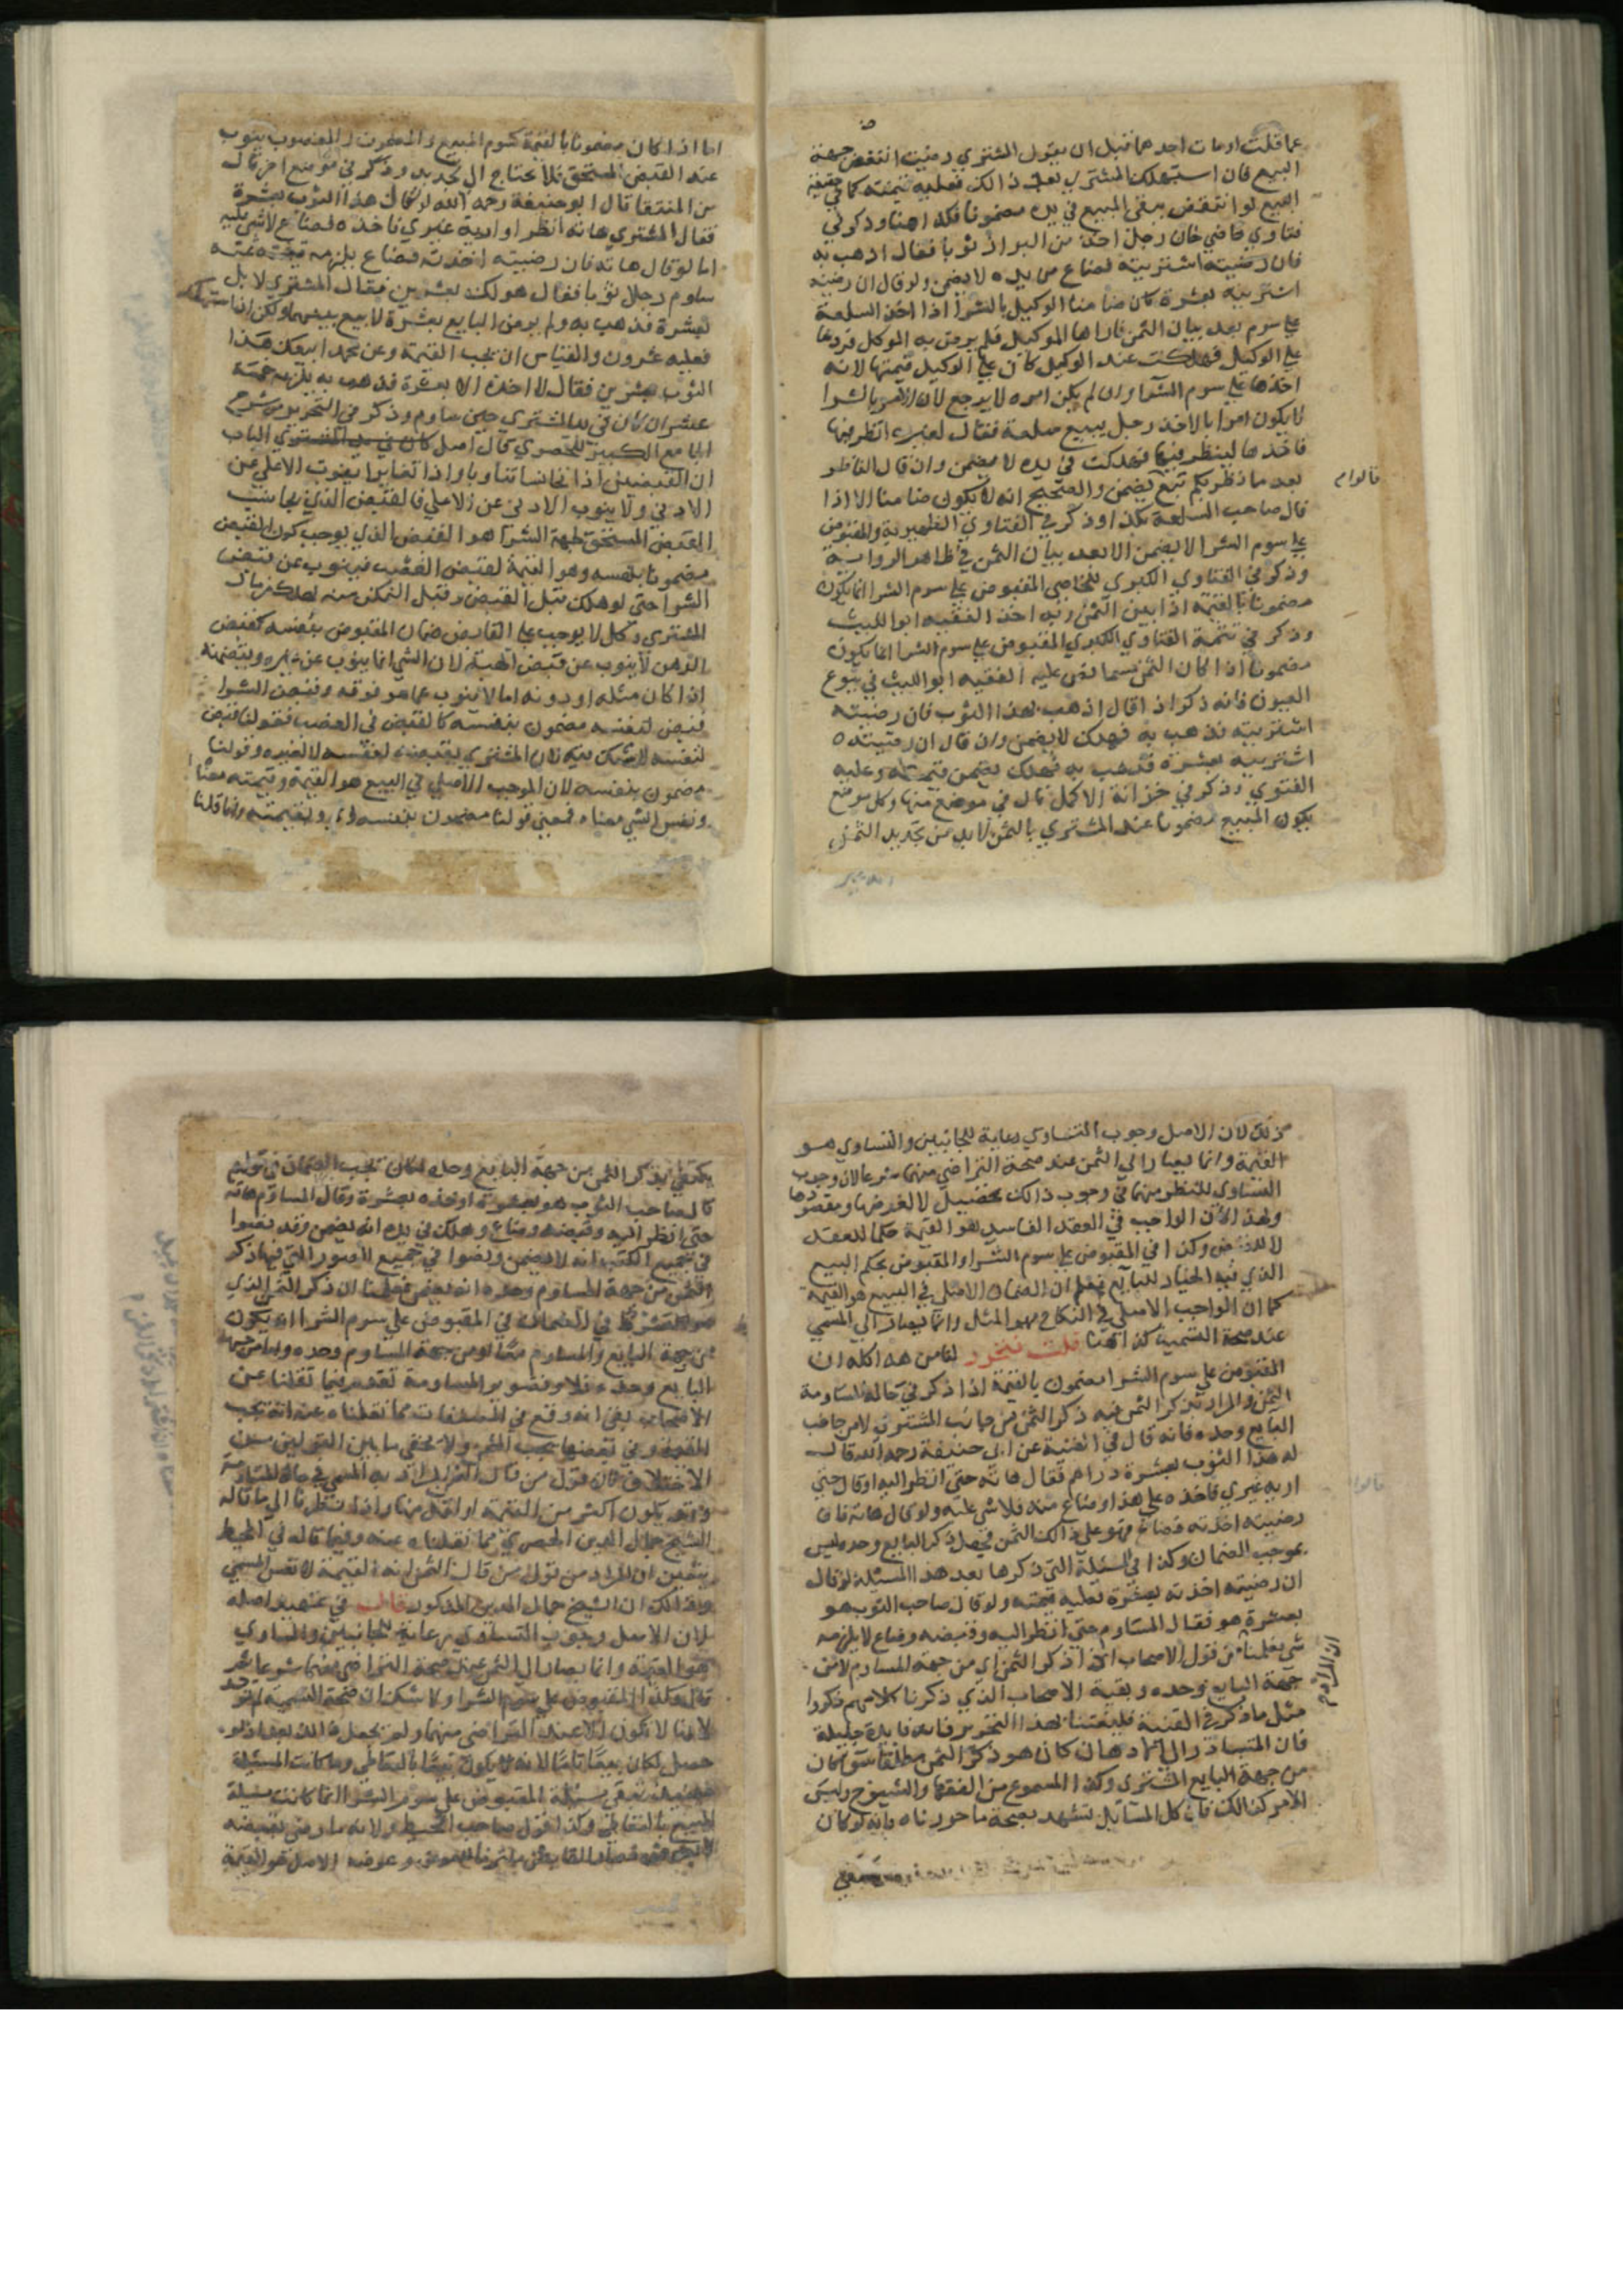 عما قلت او مات احدهما قبل ان يقول المشتري رضيت انتقض جهة
البيع فان استهلك المشتري بعد ذالك فعليه قيمته كما في حقيقة
البيع لو انتقض يبقى المبيع في يده مضمونا فكذا هنا وذكر في
فتاوي قاضي خان رجل اخذ من البزاز ثوبا فقال اذهب به
فان رضيته اشتريته فضاع من يده لا يضمن ولو قال ان رضيته
اشتريته بعشرة كان ضامنا الوكيل بالشرا اذا اخذ السلعة
علي سوم بعد بيان الثمن فاراها الموكيل فلم يرض به الموكل فردها
علي الوكيل فهلكت عند الوكيل كان علي الوكيل قيمتها لانه
اخذها علي سوم الشرا وان لم يكن امره لا يرجع لان الامر بالشرا
لا يكون امرا بالاخذ رجل يبيع سلعة فقال لغيره انظر فيها
فاخذها لينظر فيها فهلكت في يده لا يضمن وان قال الناظر
بعد ما نظر بكم تبيع يضمن والصحيح انه لا يكون ضامنا الا اذا
قال صاحب السلعة بكذا وذكر في الفتاوي الظهيرية والمقبوض
علي سوم الشرا لا يضمن الا بعد بيان الثمن في ظاهر الرواية
وذكر في الفتاوي الكبري للخاصي المقبوض علي سوم الشرا انما يكون
مضمونا بالقيمة اذا بين الثمن وبه اخذ الفقيه ابو الليث
وذكر في تتمة الفتاوي الكبري المقبوض علي سوم الشرا انما يكون
مضمونا اذا كان الثمن مسما نص عليه الفقيه ابو الليث في بيوع
العيون فانه ذكر اذا قال اذهب بهذا الثوب فان رضيته
اشتريته فذهب به فهلك لا يضمن وان قال ان رضيته
اشتريته بعشرة فذهب به فهلك يضمن قيمته وعليه
الفتوي وذكر في خزانة الاكمل قال في موضع منها وكل موضع
يكون المبيع مضمونا عند المشتري بالثمن لا بد من تجديد الثمن
قالوا م
اما اذا كان مضمونا بالقيمة كسوم المبيع والمغصوب ينوب
عند القبض المستحق فلا يحتاج الي تجديد وذكر في موضع اخر قال
من المنتقا قال ابو حنيفة رحمه الله لو قال هذا الثوب بعشرة
فقال المشتري هاته انظر او اريه غيري فاخذه فضاع لا شي عليه
اما لو قال هاته فان رضيته اخذته فضاع يلزمه ثمنه
ساوم رجلا ثوبا فقال هو لك بعشرين فقال المشتري لا بل
بعشرة فذهب به ولم يرض البايع بعشرة لا بيع بينهما ولكن ان استهلكه
فعليه عشرون والقياس ان تجب القيمة وعن محمد ابيعك هذا
الثوب بعشرين فقال لا اخذه الا بعشرة فذهب به يلزمه
عشر ان كان في يد المشتري حين ساوم وذكر في التحرير من شرح
الجامع الكبير للحصري قال اصل الباب
ان القبضين اذا تجانسا تناوبا واذا تغايرا ينوب الاعلي عن
الادني ولا ينوب الادني عن الاعلي فالقبض الذي يجانس
القبض المستحق بجهة الشرا هو القبض الذي يوجب كون القبض
مضمونا بنفسه وهو القيمة كقبض الغصب فينوب عن قبض
الشرا حتي لو هلك قبل القبض وقبل التمكن منه هلك من مال
المشتري وكل لا يوجب علي القابض ضمان المقبوض بنفسه كقبض
الرهن لا ينوب عن قبض الهبة لان الشي انما ينوب عن غيره ويتضمنه
اذا كان مثله او دونه اما لا ينوب عما هو فوقه وقبض الشرا
قبض لنفسه مضمون بنفسه كالقبض في الغصب فقولنا قبض
لنفسه لا شك فيه لان المشتري يقبضه لنفسه لا لغيره وقولنا
مضمون بنفسه لان الموجب الاصلي في البيع هو القيمة وقيمته معنا
ونفس الشي معناه فمعني قولنا مضمون بنفسه اي بقيمته وانما قلنا
ذلك لان الاصل وجوب التساوي رعاية للجانبين والتساوي هو
القيمة وانما يصار الي الثمن عند صحة التراضي منهما شرعا لان وجوب
التساوي للنظر منهما في وجوب ذالك
ولهذا لان الواجب في العقد الفاسد هو القيمة حكما للعقد
لا للقبض وكذا في المقبوض علي سوم الشرا والمقبوض بحكم البيع
الذي فيه الخيار للبايع فعلم ان الضمان الاصلي في البيع هو القيمة
كما ان الواجب الاصلي في النكاح مهر المثل وانما يصار الي المسمي
عند صحة التسمية كذا هنا قلت فتحرر لنا من هذا كله ان
المقبوض علي سوم الشرا مضمون بالقيمة اذا ذكر في حالة المساومة
الثمن والمراد بذكر الثمن فيه ذكر الثمن من جانب المشتري لا من جانب
البايع وحده فانه قال في القنية عن ابي حنيفة رحمه الله قال
له هذا الثوب بعشرة دراهم فقال هاته حتي انظر اليه او قال حتي
اريه غيري فاخذه علي هذا وضاع منه فلا شي عليه ولو قال هاته فان
رضيته اخذته فضاع فهو علي ذالك الثمن ففي ذكر البايع وحده ليس
بموجب الضمان وكذا في المسئلة التي ذكرها بعد هذا المسئلة لو قال
ان رضيته اخذته بعشرة فعليه قيمته ولو قال صاحب الثوب هو
بعشرة هو فقال المساوم حتي انظر اليه وقبضه وضاع لا يلزمه
شي فعلمنا من قول الاصحاب اذا ذكر الثمن اي من جهة المساوم لا من
جهة البايع وحده وبقية الاصحاب الذي ذكرنا كلامهم ذكروا
مثل ما ذكر في القنية فليغتنم لهذا التحرير فانه فايدة جليلة
فان المتبادر الي هان كان هو ذكر الثمن مطلقا سوا كان
من جهة البايع المشتري وكذا المسموع من الفقها والشيوخ وليس
الامر كذالك فان كل المسايل تشهد بصحة ما حررناه بانه لو كان
يكتفي بذكر الثمن من جهة البايع وحده لكان تجب الضمان في قوله
قال صاحب الثوب هو بعشرة اوخذه بعشرة وقال المساوم هاته
حتي انظر اليه وقبضه وضاع وهلك في يده انه يضمن وقد نصوا
في جميع الكتب انه لا يضمن ونصوا في جميع الصور التي فيها ذكر
الثمن من جهة المساوم وحده انه يضمن فعلمنا ان ذكر الثمن الذي
هو الشرط في الضمان في المقبوض علي سوم الشرا ان يكون
من جهة البايع والمساوم معا او من جهة المساوم وحده واما من جهة
البايع وحده فلا وتصوير المساومة تقدم فيما نقلنا عن
الاصحاب بقي انه وقع في المصنفات مما نقلناه عنه انه تجب
القيمة وفي بعضها يجب الثمن ولا يخفي ما بين القولين من
الاختلاف فان قول من قال الثمن اراد به المسمي في حالة المساومة
وقد يكون اكثر من القيمة او اقل منها واذا نظرنا الي ما قاله
الشيخ جمال الدين الحصري مما نقلناه عنه وفيما قاله في المحيط
يتعين ان المراد من قول من قال الثمن انه القيمة لا نفس المسمي
وذالك ان الشيخ جمال الدين المذكور قال في اصله
لان الاصل وجوب التساوي رعاية للجانبين والتساوي
هو القيمة وانما يصار الي الثمن عند صحة التراضي منهما شرعا ثم
قال وكذا المقبوض علي سوم الشرا ولا شك ان صحة التسمية لم توجد
لانها لا تكون الا عند التراضي منهما ولم يحصل ذالك بعد اذ لو
حصل لكان بيعا تاما لانه يكون بيعا بالتعاطي وما كانت المسئلة
تبقي مسئلة المقبوض علي سوم الشرا انما كانت مسئلة
البيع بالتعاطي وكذا قول صاحب المحيط ولانه ما رضي بقبضه